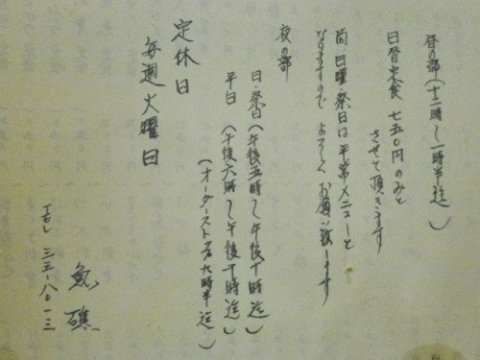 昼の部(十一時〜一時半迄)
日替定食 七五〇円のみと
させて頂きます
尚、日曜・祭日は平常メニューと
なりますので よろしくお願い致します
夜の部
日・祭日(午後五時〜午後十時迄)
平日 (午後六時〜午後十時迄)
(オーダーストップ九時半迄)
定休日
毎週火曜日
魚礁
TEL 三三-八〇一三